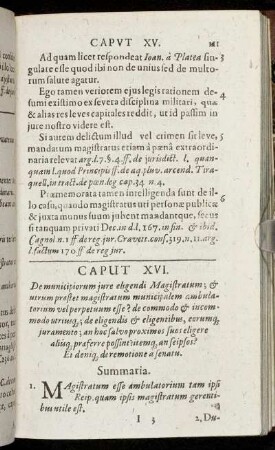 CAPVT XV.
Ad quam licet respondeat Ioan. à Platea sin-
gulare esse quod ibi non de unius sed de multo-
rum salute agatur.
Ego tamen veriorem ejus legis rationem de-
sumi existimo ex severa disciplina militari, quæ
& alias res leves capitales reddit, ut id passim in
jure nostro videre est.
Si autem delictum illud vel crimen sit leve,
mandatum magistratus etiam à pœna extraordi-
naria relevat arg. l. 7. §. 4. ff. de jurisdict. l. quan-
quam l. quod Principis ff. de aq. pluv. arcend. Tira-
quell. in tract. de pœn. leg cap. 34 n. 4.
Præmemorata tamen intelligenda sunt de il-
lo casu, quando magistratus uti personæ publicæ
& juxta munus suum jubent mandantque, secus
si tanquam privati Dec. in d. l. 167. in fin. & ibid.
Cagnol n. 1 ff. de reg. jur. Cravett. cons. 319. n. 11. arg.
l. factum 170. ff de reg jur.
CAPUT XVI.
De municipiorum jure eligendi Magistratum; &
utrum præstet magistratum municipalem ambula-
torium vel perpetuum esse? de commodo & incom-
modo utriusq; de eligendis & eligentibus, eorumq;
juramento; an huc salvo proximos suos eligere
aliisq; præferre possint? itemq; an seipsos?
Et deniq; de remotione a senatu.
Summaria.
1. MAgistratum esse ambulatorium tam ipsi
Reip. quam ipsis magistratum gerenti-
bus utile est.
I 3
2. Du-